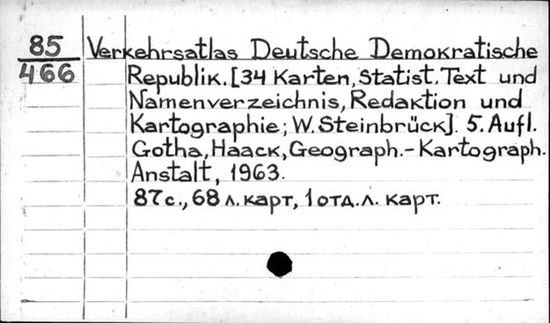 85
466
Verkehrsatlas Deutsche Demokratische
Republik. [34 Karten, Statist. Text und
Namenverzeichnis, Redaktion und
Kartographie; W. Steinbrück]. 5. Aufl.
Gotha, Haack, Geograph.-Kartograph.
Anstalt, 1963.
87 с., 68 л. карт, 1 отд. л. карт.